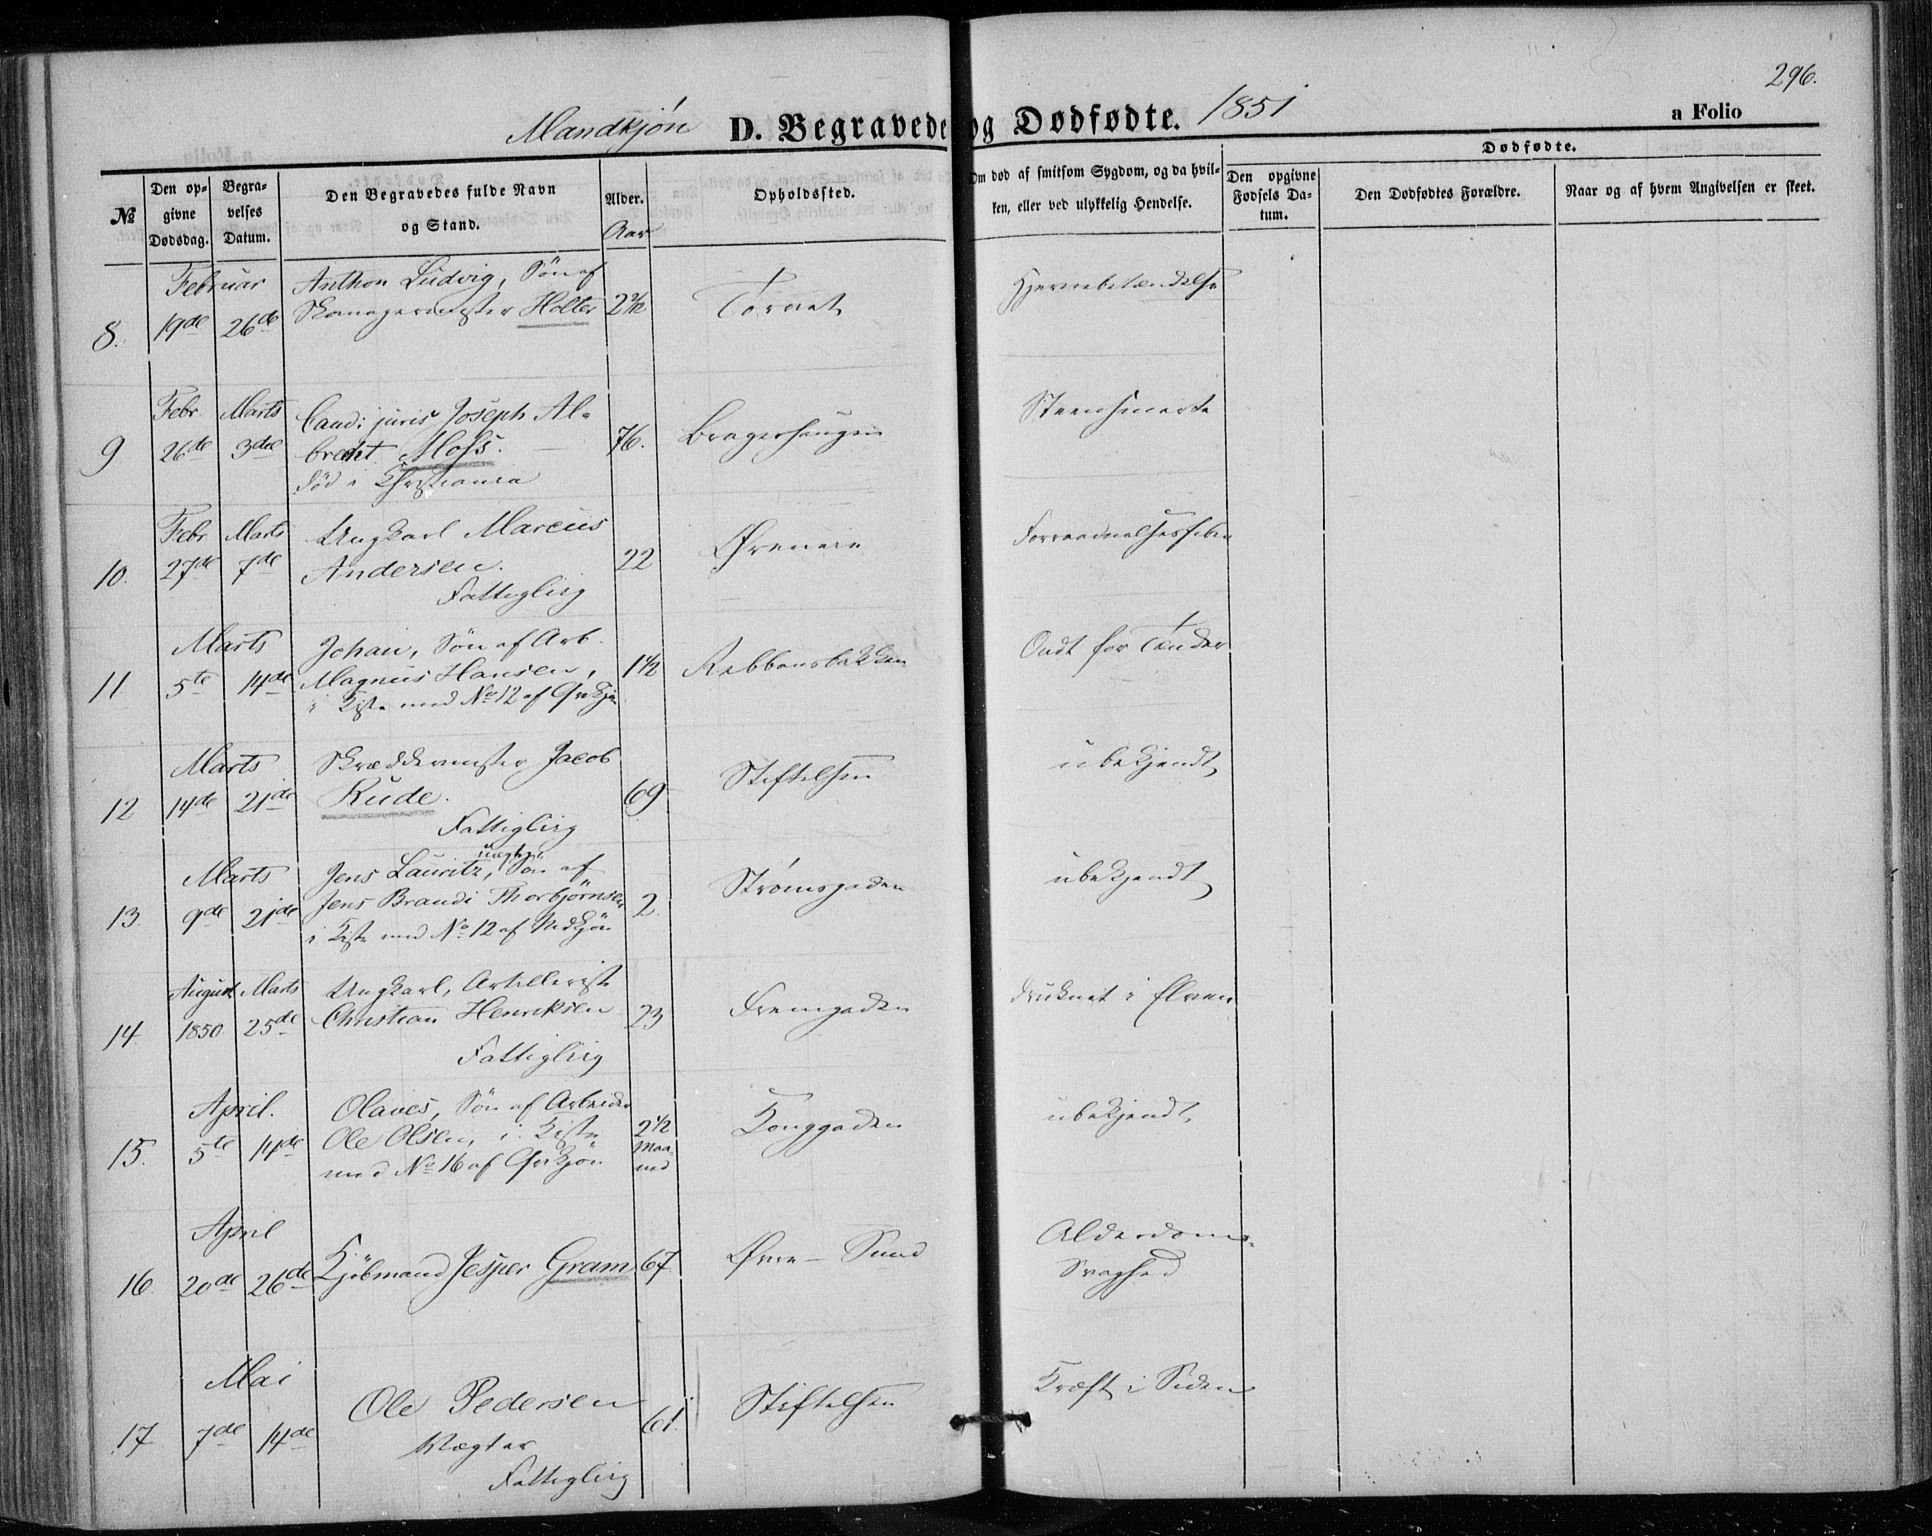 296.
Mandkjøn D. Begravede og Dødfødte. 1851
a Folio
Dødfødte.
№
Den opgivne Dødsdag.
Begravelses Datum.
Den Begravedes fulde Navn og Stand.
Alder. Aar
Opholdssted.
Om død af smitsom Sygdom, og da hvilken, eller ved ulykkelig Hendelse.
Den opgivne Fødsels Datum.
Den Dødfødtes Forældre.
Naar og af hvem Angivelsen er skeet.
Februar Anthon Ludvig, Søn af
8. 19de 26de Skomagermester Holter Tornet Hjernebetændelse
Febr Marts Cand: juris Joseph Al-
9 26de 3die brecht Moss. 76. Bragerhaugen Steensmerte
død i Christiania
Febr Marts Ungkarl Marcus
10. 27de 7de Andersen. 22 Ørenene Forraadnelsesfeber
Fattiglig
Marts Johan, Søn af Arb.
11 5te 14de Magnus Hansen, 1 1/2 Rebbansbakken Ondt for Tænder
i Kiste med No 12 af Qvkjøn
Marts Skræddermester Jacob
12 14de 21de Rude. 69 Stiftelsen ubekjendt
Fattiglig
Marts Jens Lauritz, uægte Søn af
13. 9de 21de Jens Brandi Thorbjørnsen 2. Strømsgaden ubekjendt
i Kiste med No 12 af Mdkjøn
August Marts Ungkarl, Artillerist
14. 1850 25de Christian Henriksen 23 Fremgaden druknet i Elven
Fattiglig
April. Olaves, Søn af Arbeider
15. 5te 14de Ole Olsen, i Kiste 2 1/2 Maaned Konggaden ubekjendt
med No 16 af Qvkjøn
April
16. 20de 26de Kjøbmand Jesper Gram 67 Øvre-Sund Alderdoms-
Svaghed
Mai
17 7de 14de Ole Pedersen 61. Stiftelsen Kræft i Siden
Vægter
Fattiglig